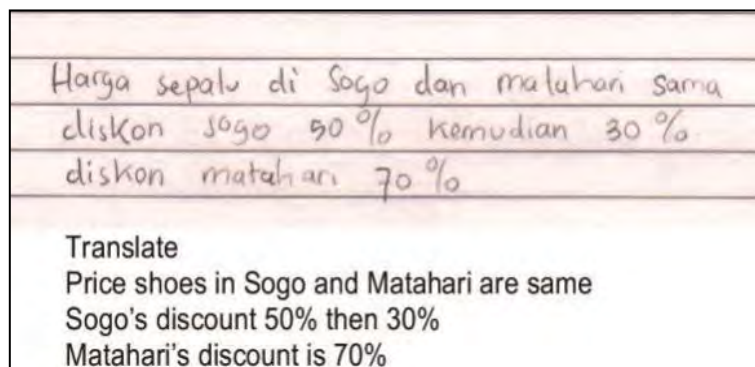 Harga sepatu di Sogo dan matahari sama
diskon sogo 50% kemudian 30%
diskon matahari 70%
Translate
Price shoes in Sogo and Matahari are same
Sogo's discount 50% then 30%
Matahari's discount is 70%